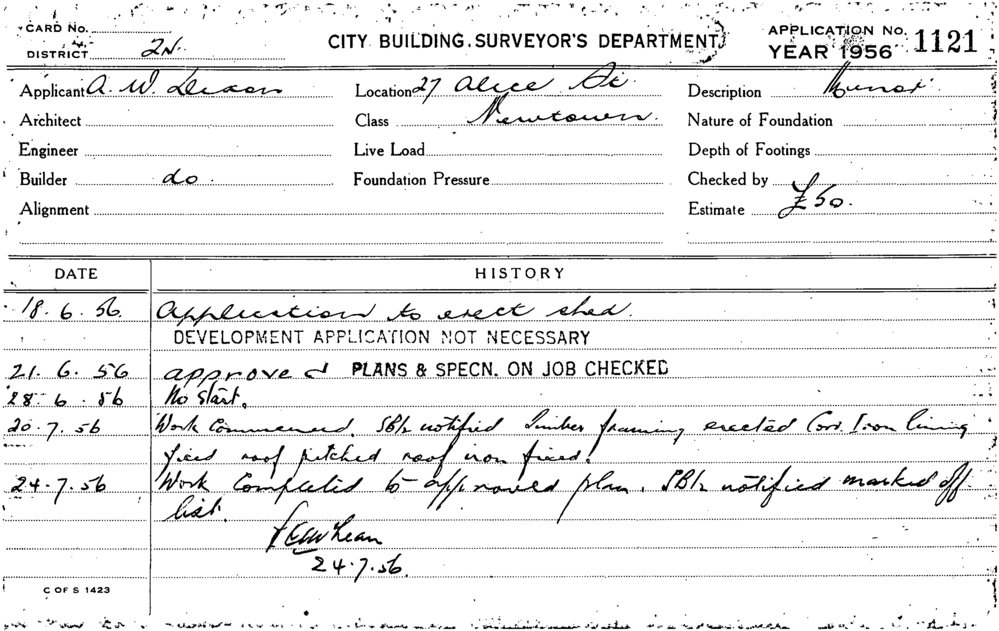 CARD No.
DISTRICT 2N.
CITY BUILDING SURVEYOR'S DEPARTMENT
APPLICATION No. 1121
YEAR 1956
Applicant A. W. Dixon Location 27 Alice St Description Minor
Architect Class Newtown. Nature of Foundation
Engineer Live Load Depth of Footings
Builder do. Foundation Pressure Checked by
Alignment Estimate £50.
DATE HISTORY
18. 6. 56. Application to erect shed.
DEVELOPMENT APPLICATION NOT NECESSARY
21. 6. 56 approved PLANS & SPECN. ON JOB CHECKED
28. 6. 56 No Start.
20. 7. 56 Work Commenced. notified Timber framing erected Corr. Iron lining
fixed roof pitched roof iron fixed.
24. 7. 56 Work Completed to approved plan. notified marked off
list.
24.7.56.
C OF S 1423